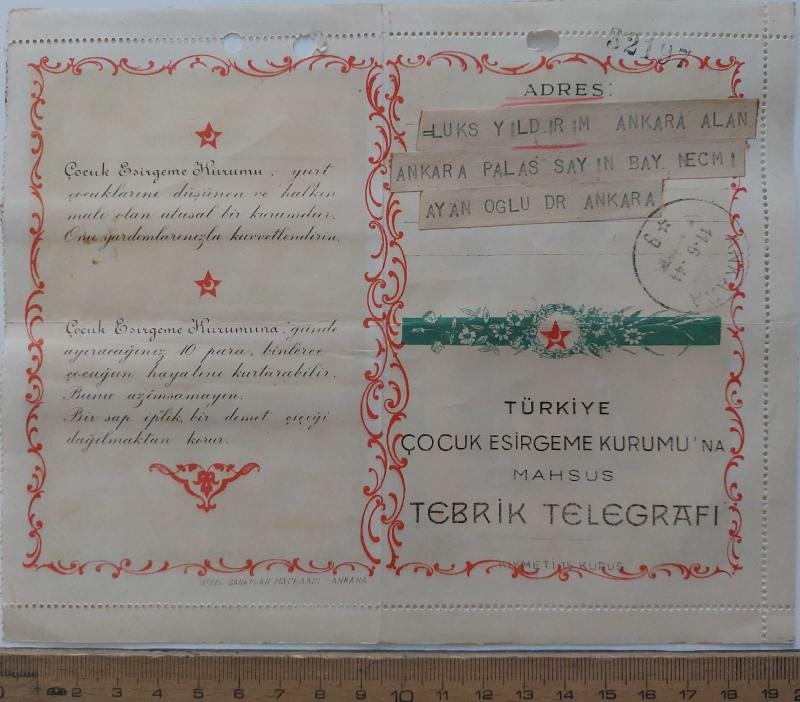 Çocuk Esirgeme Kurumu, yurt
çocuklarını düşünen ve halkın
malı olan ulusal bir kurumdur.
Onu yardımlarınızla kuvvetlendirin.
Çocuk Esirgeme Kurumuna, günde
ayıracağınız 10 para, binlerce
çocuğun hayatını kurtarabilir.
Bunu azımsamayın.
Bir sap iplik, bir demet çiçeği
dağılmaktan korur.
GÜZEL SANATLAR MATBAASI - ANKARA
ADRES:
=LUKS YILDIRIM ANKARA ALAN
ANKARA PALAS SAYIN BAY NECMI
AYAN OGLU DR ANKARA
ANKARA
TÜRKİYE
ÇOCUK ESİRGEME KURUMU'NA
MAHSUS
TEBRİK TELEGRAFI
KIYMETİ 15 KURUŞ
0 1 2 3 4 5 6 7 8 9 10 11 12 13 14 15 16 17 18 19 2